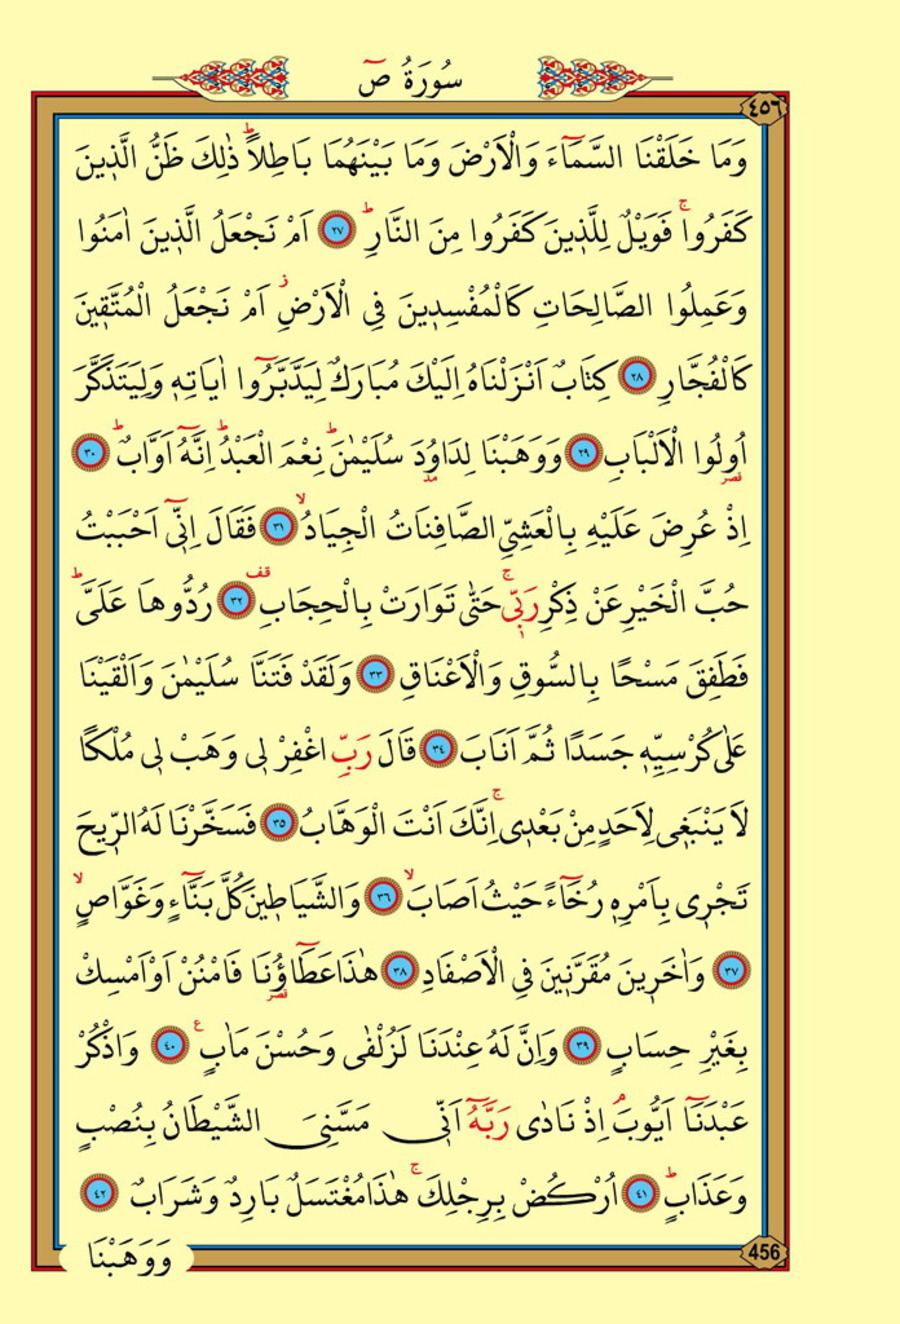 سُورَةُ صٓ
٤٥٦
وَمَا خَلَقْنَا السَّمَٓاءَ وَالْاَرْضَ وَمَا بَيْنَهُمَا بَاطِلاًۜ ذٰلِكَ ظَنُّ الَّذ۪ينَ
كَفَرُواۚ فَوَيْلٌ لِلَّذ۪ينَ كَفَرُوا مِنَ النَّارِۜ ﴿٢٧﴾ اَمْ نَجْعَلُ الَّذ۪ينَ اٰمَنُوا
وَعَمِلُوا الصَّالِحَاتِ كَالْمُفْسِد۪ينَ فِي الْاَرْضِۘ اَمْ نَجْعَلُ الْمُتَّق۪ينَ
كَالْفُجَّارِ ﴿٢٨﴾ كِتَابٌ اَنْزَلْنَاهُ اِلَيْكَ مُبَارَكٌ لِيَدَّبَّرُٓوا اٰيَاتِه۪ وَلِيَتَذَكَّرَ
اُو۬لُوا الْاَلْبَابِ ﴿٢٩﴾ وَوَهَبْنَا لِدَاوُ۫دَ سُلَيْمٰنَۜ نِعْمَ الْعَبْدُۜ اِنَّهُٓ اَوَّابٌۜ ﴿٣٠﴾
اِذْ عُرِضَ عَلَيْهِ بِالْعَشِيِّ الصَّافِنَاتُ الْجِيَادُۙ ﴿٣١﴾ فَقَالَ اِنّ۪ٓي اَحْبَبْتُ
حُبَّ الْخَيْرِ عَنْ ذِكْرِ رَبّ۪يۚ حَتّٰى تَوَارَتْ بِالْحِجَابِ۠ ﴿٣٢﴾ رُدُّوهَا عَلَيَّۜ
فَطَفِقَ مَسْحًا بِالسُّوقِ وَالْاَعْنَاقِ ﴿٣٣﴾ وَلَقَدْ فَتَنَّا سُلَيْمٰنَ وَاَلْقَيْنَا
عَلٰى كُرْسِيِّه۪ جَسَدًا ثُمَّ اَنَابَ ﴿٣٤﴾ قَالَ رَبِّ اغْفِرْ ل۪ي وَهَبْ ل۪ي مُلْكًا
لَا يَنْبَغ۪ي لِاَحَدٍ مِنْ بَعْد۪يۚ اِنَّكَ اَنْتَ الْوَهَّابُ ﴿٣٥﴾ فَسَخَّرْنَا لَهُ الرّ۪يحَ
تَجْر۪ي بِاَمْرِه۪ رُخَٓاءً حَيْثُ اَصَابَۙ ﴿٣٦﴾ وَالشَّيَاط۪ينَ كُلَّ بَنَّٓاءٍ وَغَوَّاصٍۙ
﴿٣٧﴾ وَاٰخَر۪ينَ مُقَرَّن۪ينَ فِي الْاَصْفَادِ ﴿٣٨﴾ هٰذَا عَطَٓاؤُ۬نَا فَامْنُنْ اَوْ اَمْسِكْ
بِغَيْرِ حِسَابٍ ﴿٣٩﴾ وَاِنَّ لَهُ عِنْدَنَا لَزُلْفٰى وَحُسْنَ مَاٰبٍ۟ ﴿٤٠﴾ وَاذْكُرْ
عَبْدَنَٓا اَيُّوبَۢ اِذْ نَادٰى رَبَّهُٓ اَنّ۪ي مَسَّنِيَ الشَّيْطَانُ بِنُصْبٍ
وَعَذَابٍۜ ﴿٤١﴾ اُرْكُضْ بِرِجْلِكَۚ هٰذَا مُغْتَسَلٌ بَارِدٌ وَشَرَابٌ ﴿٤٢﴾
456
وَوَهَبْنَا